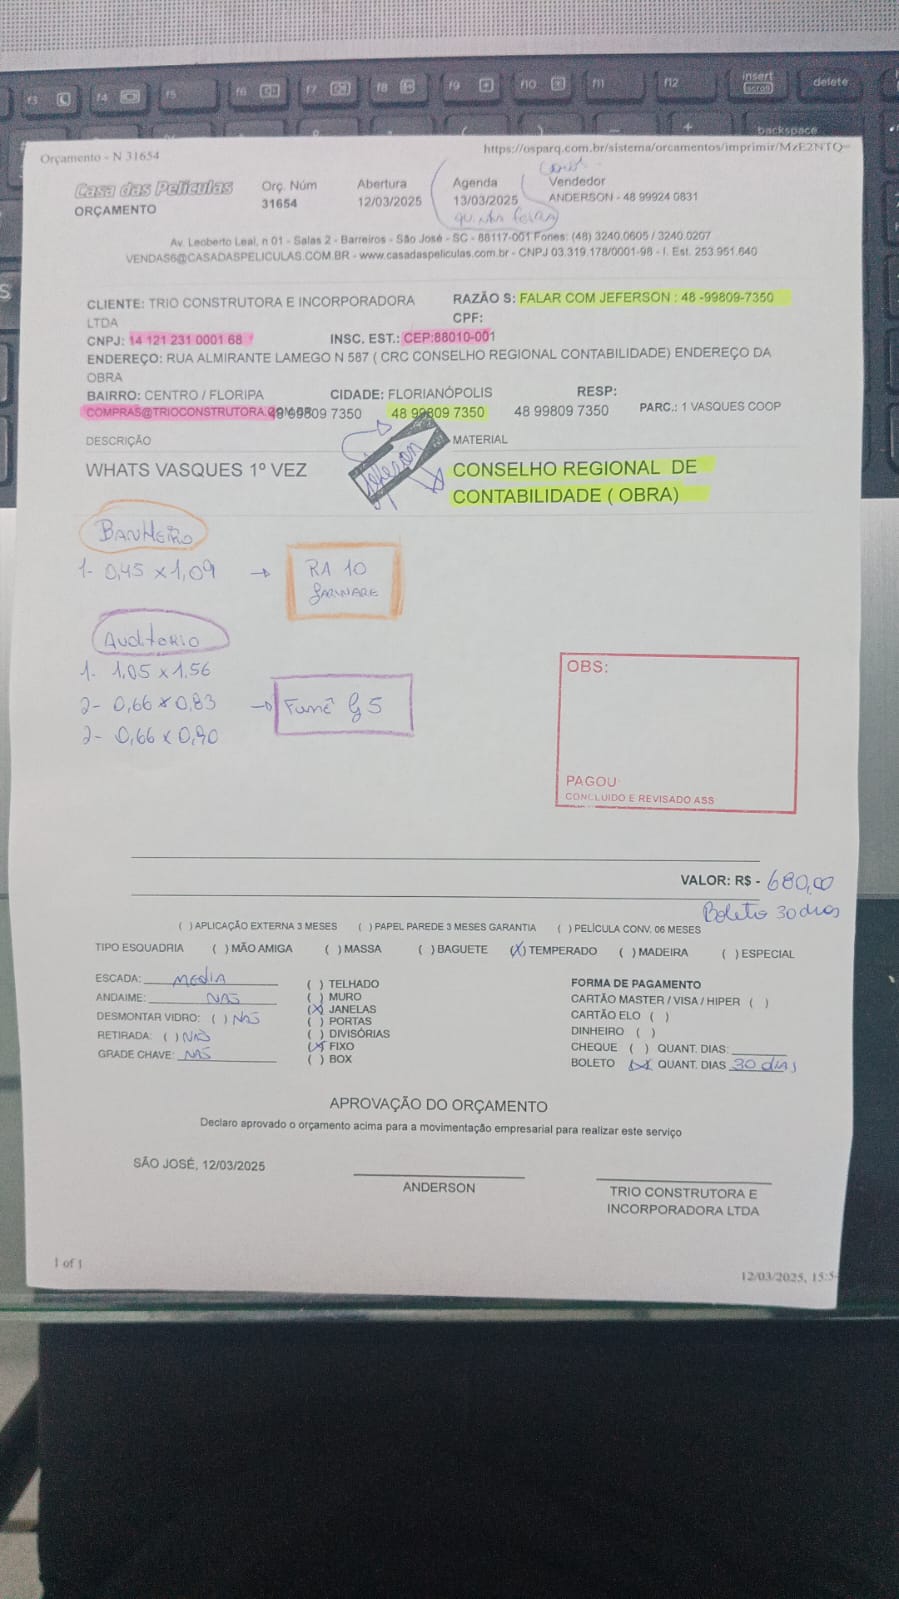 f3 f4 f5 f6 f7 f8 f9 f10 f11 f12 insert delete
backspace
Orçamento - N 31654 https://osparq.com.br/sistema/orcamentos/imprimir/MzE2NTQ=
Casa das Películas Orç. Núm Abertura Agenda Vendedor
ORÇAMENTO 31654 12/03/2025 13/03/2025 ANDERSON - 48 99924 0831
quinta feira
Av. Leoberto Leal, n 01 - Salas 2 - Barreiros - São José - SC - 88117-001 Fones: (48) 3240.0605 / 3240.0207
VENDAS6@CASADASPELICULAS.COM.BR - www.casadaspeliculas.com.br - CNPJ 03.319.178/0001-98 - I. Est. 253.951.640
CLIENTE: TRIO CONSTRUTORA E INCORPORADORA RAZÃO S: FALAR COM JEFERSON : 48 -99809-7350
LTDA CPF:
CNPJ: 14 121 231 0001 68 INSC. EST.: CEP:88010-001
ENDEREÇO: RUA ALMIRANTE LAMEGO N 587 ( CRC CONSELHO REGIONAL CONTABILIDADE) ENDEREÇO DA
OBRA
BAIRRO: CENTRO / FLORIPA CIDADE: FLORIANÓPOLIS RESP:
COMPRAS@TRIOCONSTRUTORA. 99809 7350 48 99809 7350 48 99809 7350 PARC.: 1 VASQUES COOP
DESCRIÇÃO MATERIAL
WHATS VASQUES 1º VEZ Jeferson CONSELHO REGIONAL DE
CONTABILIDADE ( OBRA)
BANHEIRO
1- 0,45 x 1,09 → RA 10
GARWARE
Auditorio
1- 1,05 x 1,56
2- 0,66 x 0,83 → Fumê G5
2- 0,66 x 0,90
OBS:
PAGOU
CONCLUIDO E REVISADO ASS
VALOR: R$ - 680,00
Boleto 30 dias
( ) APLICAÇÃO EXTERNA 3 MESES ( ) PAPEL PAREDE 3 MESES GARANTIA ( ) PELÍCULA CONV. 06 MESES
TIPO ESQUADRIA ( ) MÃO AMIGA ( ) MASSA ( ) BAGUETE (X) TEMPERADO ( ) MADEIRA ( ) ESPECIAL
ESCADA: MEDIA ( ) TELHADO FORMA DE PAGAMENTO
ANDAIME: NAO ( ) MURO CARTÃO MASTER / VISA / HIPER ( )
DESMONTAR VIDRO: ( ) NAO (X) JANELAS CARTÃO ELO ( )
RETIRADA: ( ) NAO ( ) PORTAS DINHEIRO ( )
GRADE CHAVE: NAO ( ) DIVISÓRIAS CHEQUE ( ) QUANT. DIAS:
(X) FIXO BOLETO (X) QUANT. DIAS 30 dias
( ) BOX
APROVAÇÃO DO ORÇAMENTO
Declaro aprovado o orçamento acima para a movimentação empresarial para realizar este serviço
SÃO JOSÉ, 12/03/2025
ANDERSON TRIO CONSTRUTORA E
INCORPORADORA LTDA
1 of 1 12/03/2025, 15:5